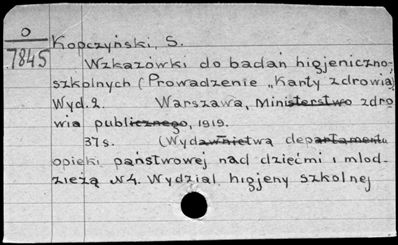 O
7845
Kopczyński, S.
Wzkazówki do badań higjeniczno-
szkolnych (Prowadzenie „Karty zdrowia)
Wyd. 2. Warszawa, Ministerstwo zdro
wia publicznego, 1919.
37 s. (Wydawnictwa departamentu
opieki państwowej nad dziećmi i mlod-
zieżą N4. Wydzial higjeny szkolnej